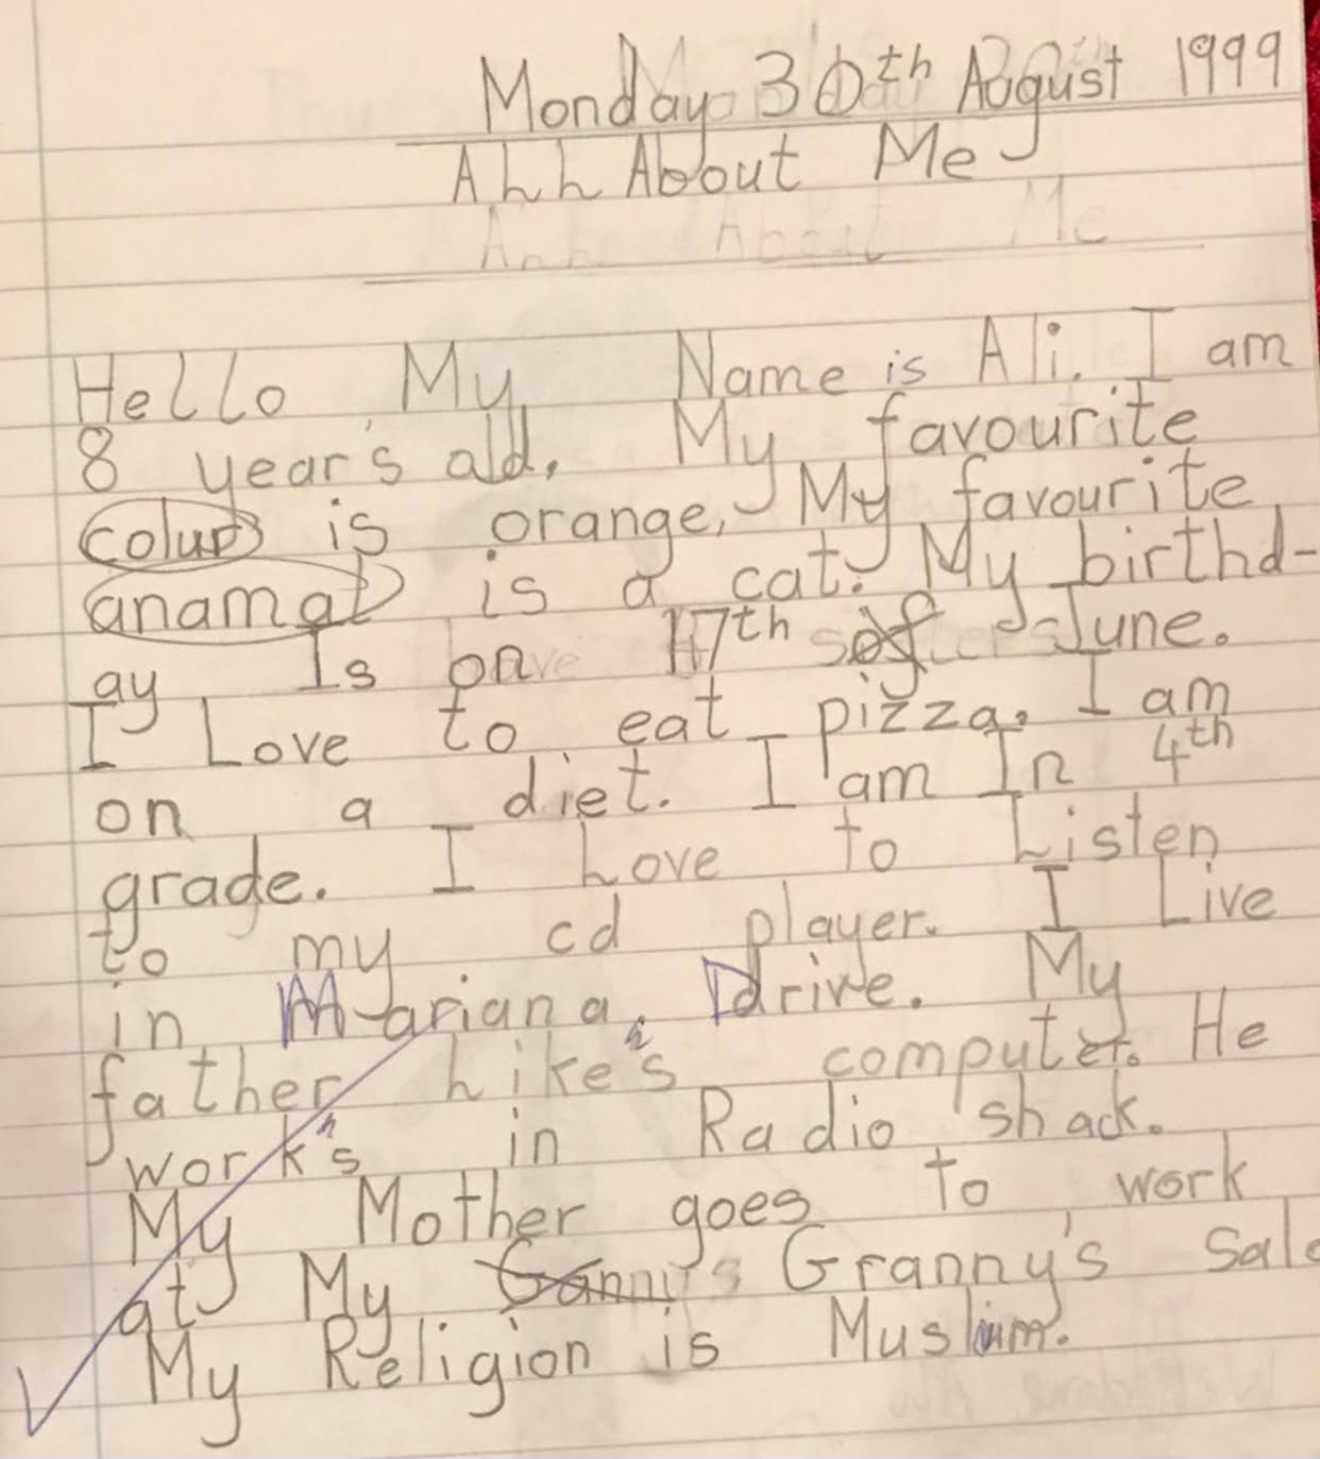 Monday 30th August 1999
All About Me
Hello My Name is Ali. I am
8 year's old. My favourite
colur is orange. My favourite
anamal is a cat. My birthd-
ay Is on 17th of June.
I Love to eat pizza. I am
on a diet. I am In 4th
grade. I Love to Listen
to my cd player. I Live
in Mariana Drive. My
father Like's computer. He
work's in Radio shack.
My Mother goes to work
at My Granny's
My Religion is Muslim.